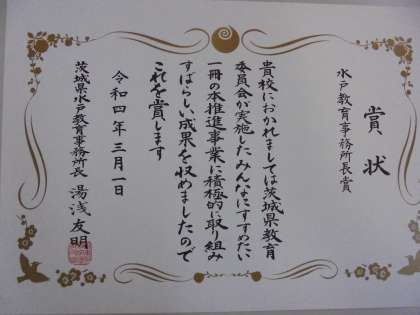 賞状
水戸教育事務所長賞
貴校におかれましては茨城県教育
委員会が実施したみんなにすすめたい
一冊の本推進事業に積極的に取り組み
すばらしい成果を収めましたので
これを賞します
令和四年三月一日
茨城県水戸教育事務所長 湯浅友明